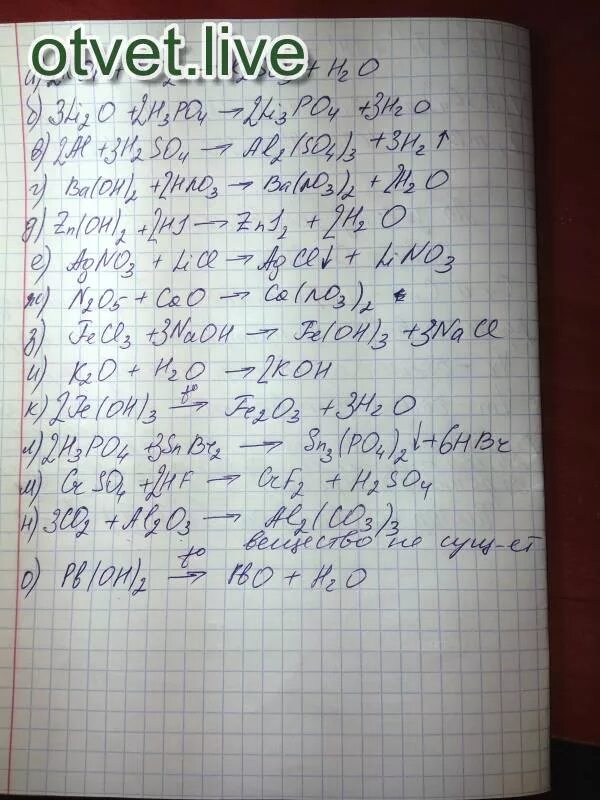 otvet.live
+ H2O
б) 3Li2O + 2H3PO4 → 2Li3PO4 + 3H2O
в) 2Al + 3H2SO4 → Al2(SO4)3 + 3H2↑
г) Ba(OH)2 + 2HNO3 → Ba(NO3)2 + 2H2O
д) Zn(OH)2 + 2HI → ZnI2 + 2H2O
е) AgNO3 + LiCl → AgCl↓ + LiNO3
ж) N2O5 + CaO → Ca(NO3)2
з) FeCl3 + 3NaOH → Fe(OH)3 + 3NaCl
и) K2O + H2O → 2KOH
к) 2Fe(OH)3 t° → Fe2O3 + 3H2O
л) 2H3PO4 + 3SnBr2 → Sn3(PO4)2↓ + 6HBr
м) CrSO4 + 2HF → CrF2 + H2SO4
н) 3CO2 + Al2O3 → Al2(CO3)3
вещество не сущ-ет
о) Pb(OH)2 t° → PbO + H2O